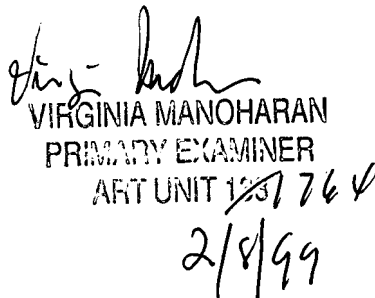 VIRGINIA MANOHARAN
PRIMARY EXAMINER
ART UNIT 1764
2/8/99